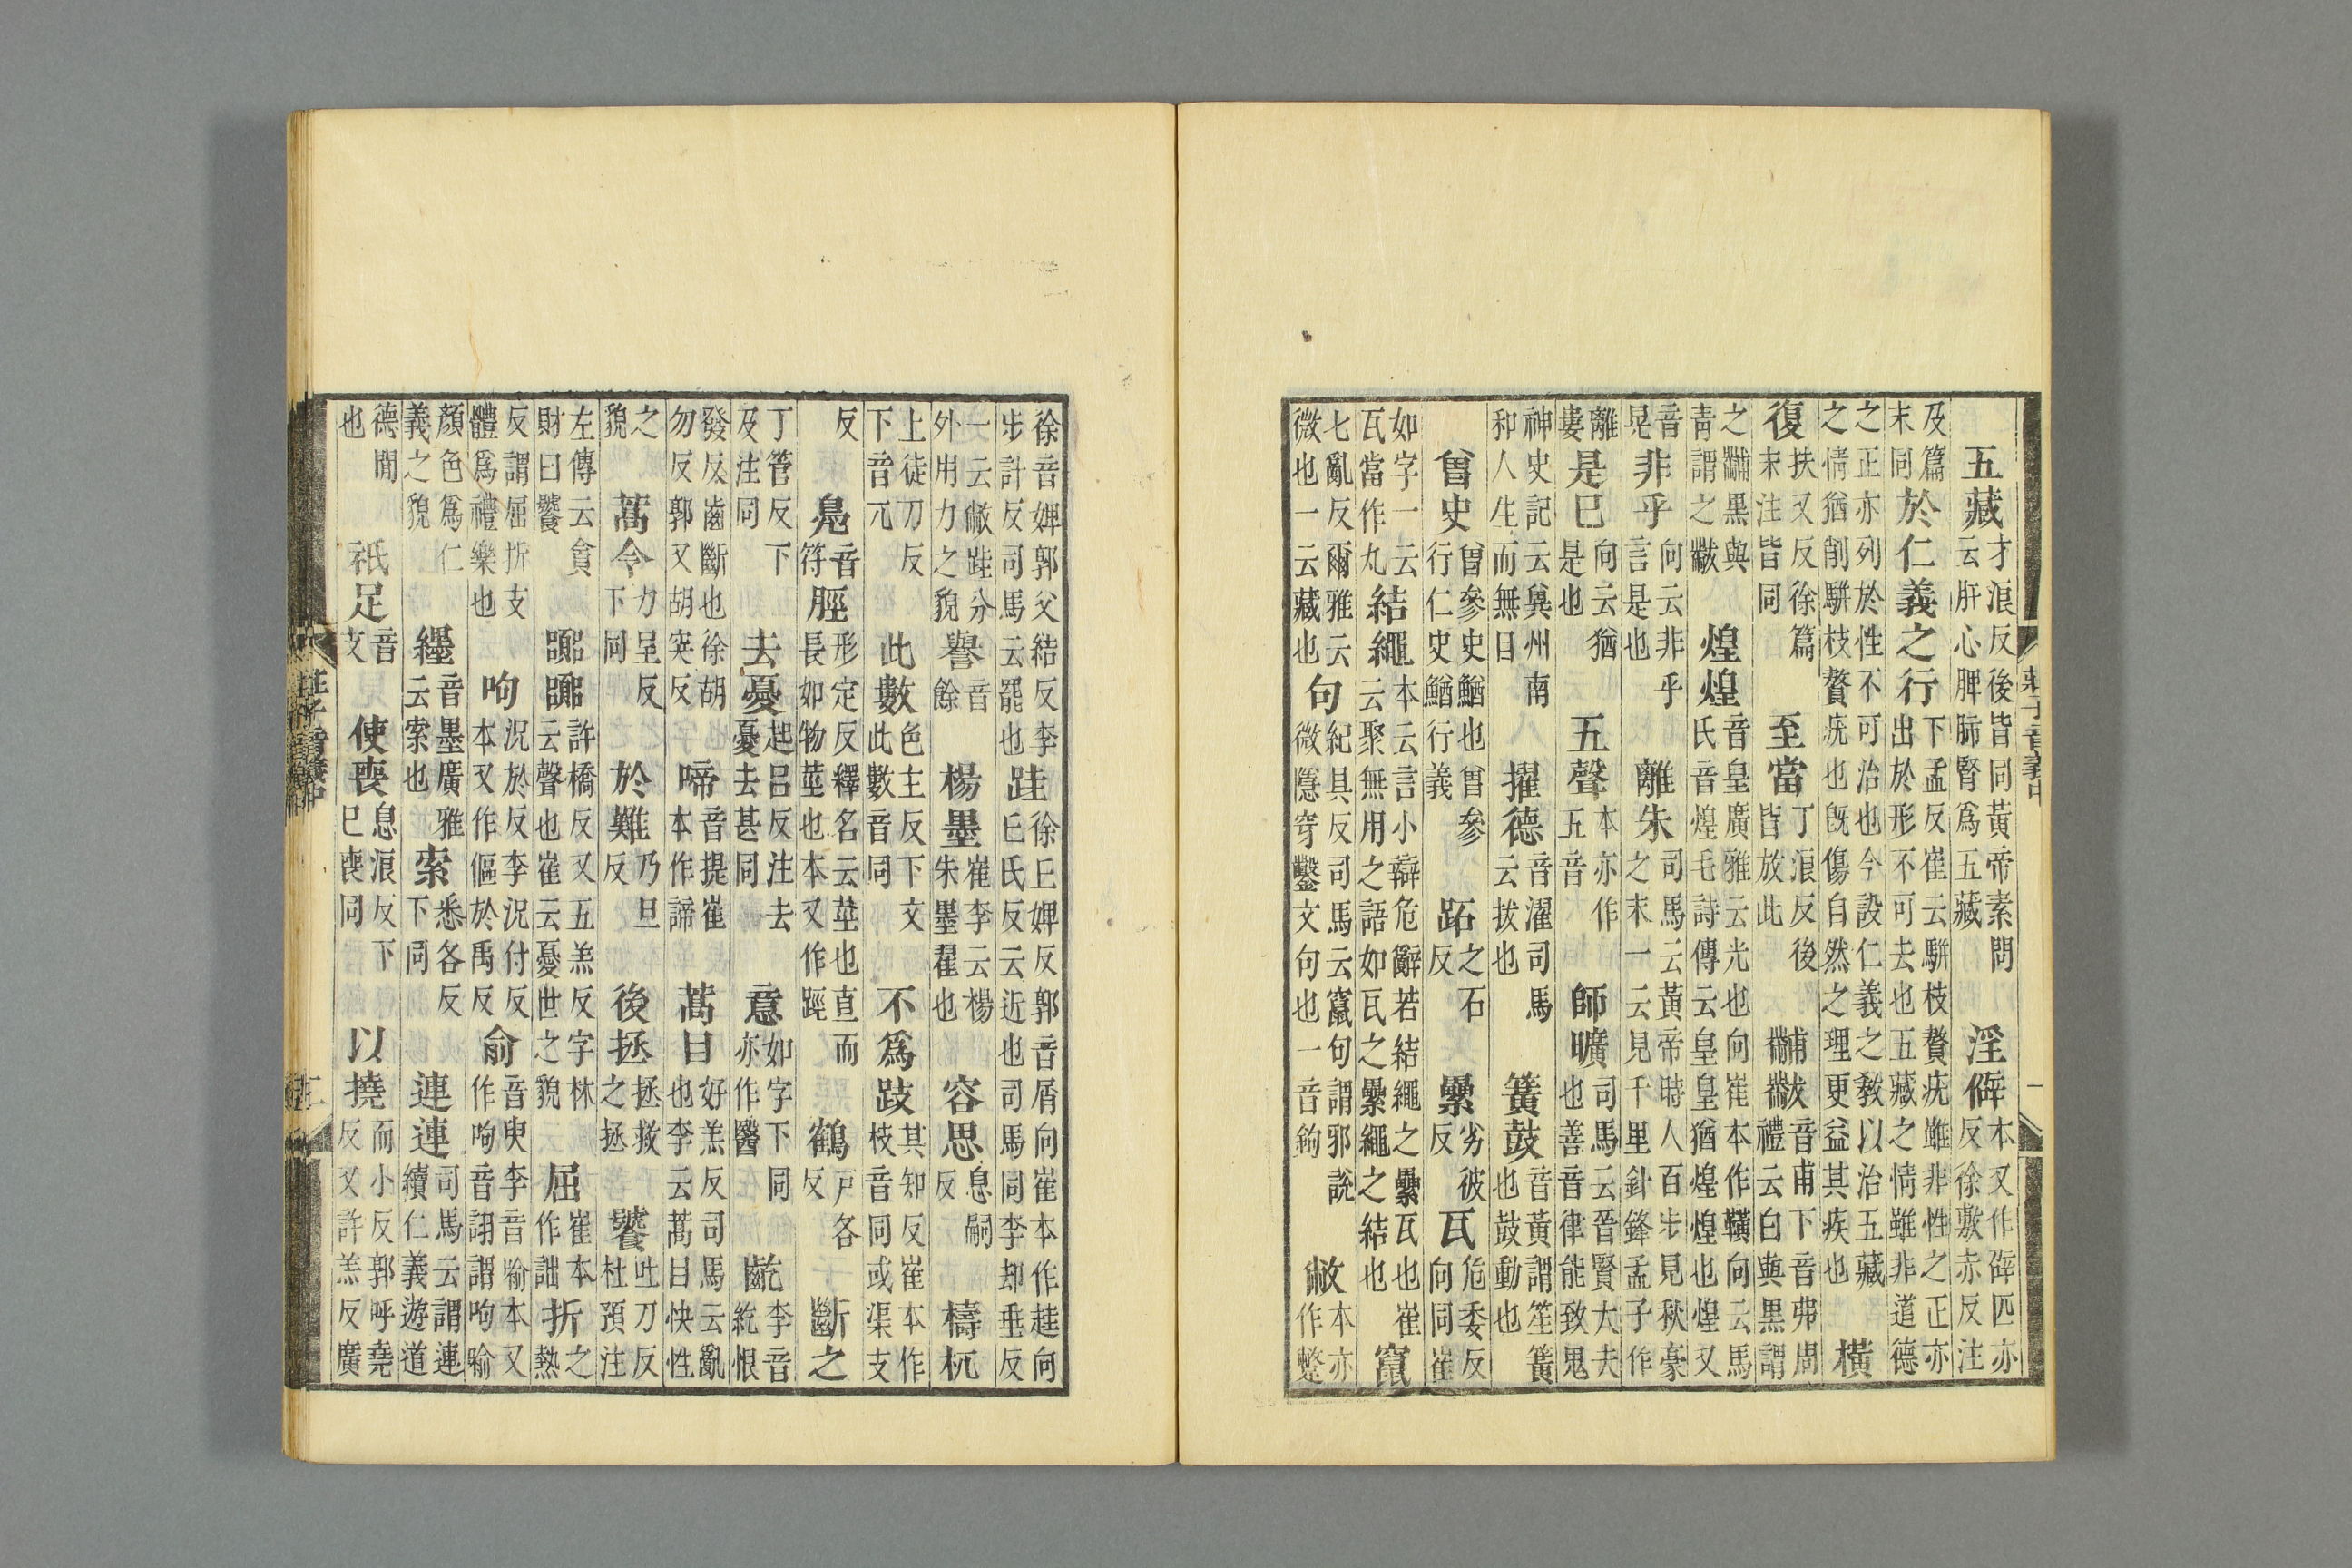 莊子音義中
五藏才浪反後皆同黃帝素問云肝心脾肺腎爲五藏淫僻本又作辟匹亦反徐敷赤反注
及篇末同於仁義之行下孟反崔云駢枝贅疣雖非性之正亦出於形不可去也五藏之情雖非道德
之正亦列於性不可治也今設仁義之敎以治五藏之情猶削駢枝贅疣也旣傷自然之理更益其疾也橫
復扶又反徐篇末注皆同至當丁浪反後皆放此黼黻音甫下音弗周禮云白與黑謂
之黼黑與青謂之黻煌煌音皇廣雅云光也向崔本作䪄向云馬氏音煌毛詩傳云皇皇猶煌煌也煌又
音晃非乎向云非乎言是也離朱司馬云黃帝時人百步見秋豪之末一云見千里針鋒孟子作
離婁是已向云猶是也五聲本亦作五音師曠司馬云晉賢大夫也善音律能致鬼
神史記云兾州南和人生而無目擢德音濯司馬云拔也簧鼓音黃謂笙簧也鼓動也
曾史曾參史鰌也曾參行仁史鰌行義跖之石反纍劣彼反瓦危委反向同崔
如字一云瓦當作丸結繩本云言小辯危辭若結繩之纍瓦也崔云聚無用之語如瓦之纍繩之結也竄
七亂反爾雅云微也一云藏也句紀具反司馬云竄句謂邪說微隱穿鑿文句也一音鉤敝本亦作蹩
徐音婢郭父結反李步計反司馬云罷也跬徐丘婢反郭音屑向崔本作䞨向丘氏反云近也司馬同李却垂反
一云敝跬分外用力之貌譽音餘楊墨崔李云楊朱墨翟也容思息嗣反檮杌
上徒刀反下音兀此數色主反下文此數音同不爲跂其知反崔本作枝音同或渠支
反鳧音符脛形定反釋名云莖也直而長如物莖也本又作踁鶴戶各反斷之
丁管反下及注同去憂起呂反注去憂去甚同意如字下同亦作醫齕李音紇恨
發反齒斷也徐胡勿反郭又胡突反啼音提崔本作諦蒿目好羔反司馬云亂也李云蒿目快性
之貌蒿令力呈反下同於難乃旦反後拯拯救之拯饕吐刀反杜預注
左傳云貪財曰饕嚻嚻許橋反又五羔反字林云聲也崔云憂世之貌屈崔本作詘折之熱
反謂屈折支體爲禮樂也呴況於反李況付反本又作傴於禹反俞音臾李音喻本又作呴音詡謂呴喻
顏色爲仁義之貌纆音墨廣雅云索也索悉各反下同連連司馬云謂連續仁義遊道
德閒也祇足音支使喪息浪反下已喪同以撓而小反郭呼堯反又許羔反廣
莊子音義中